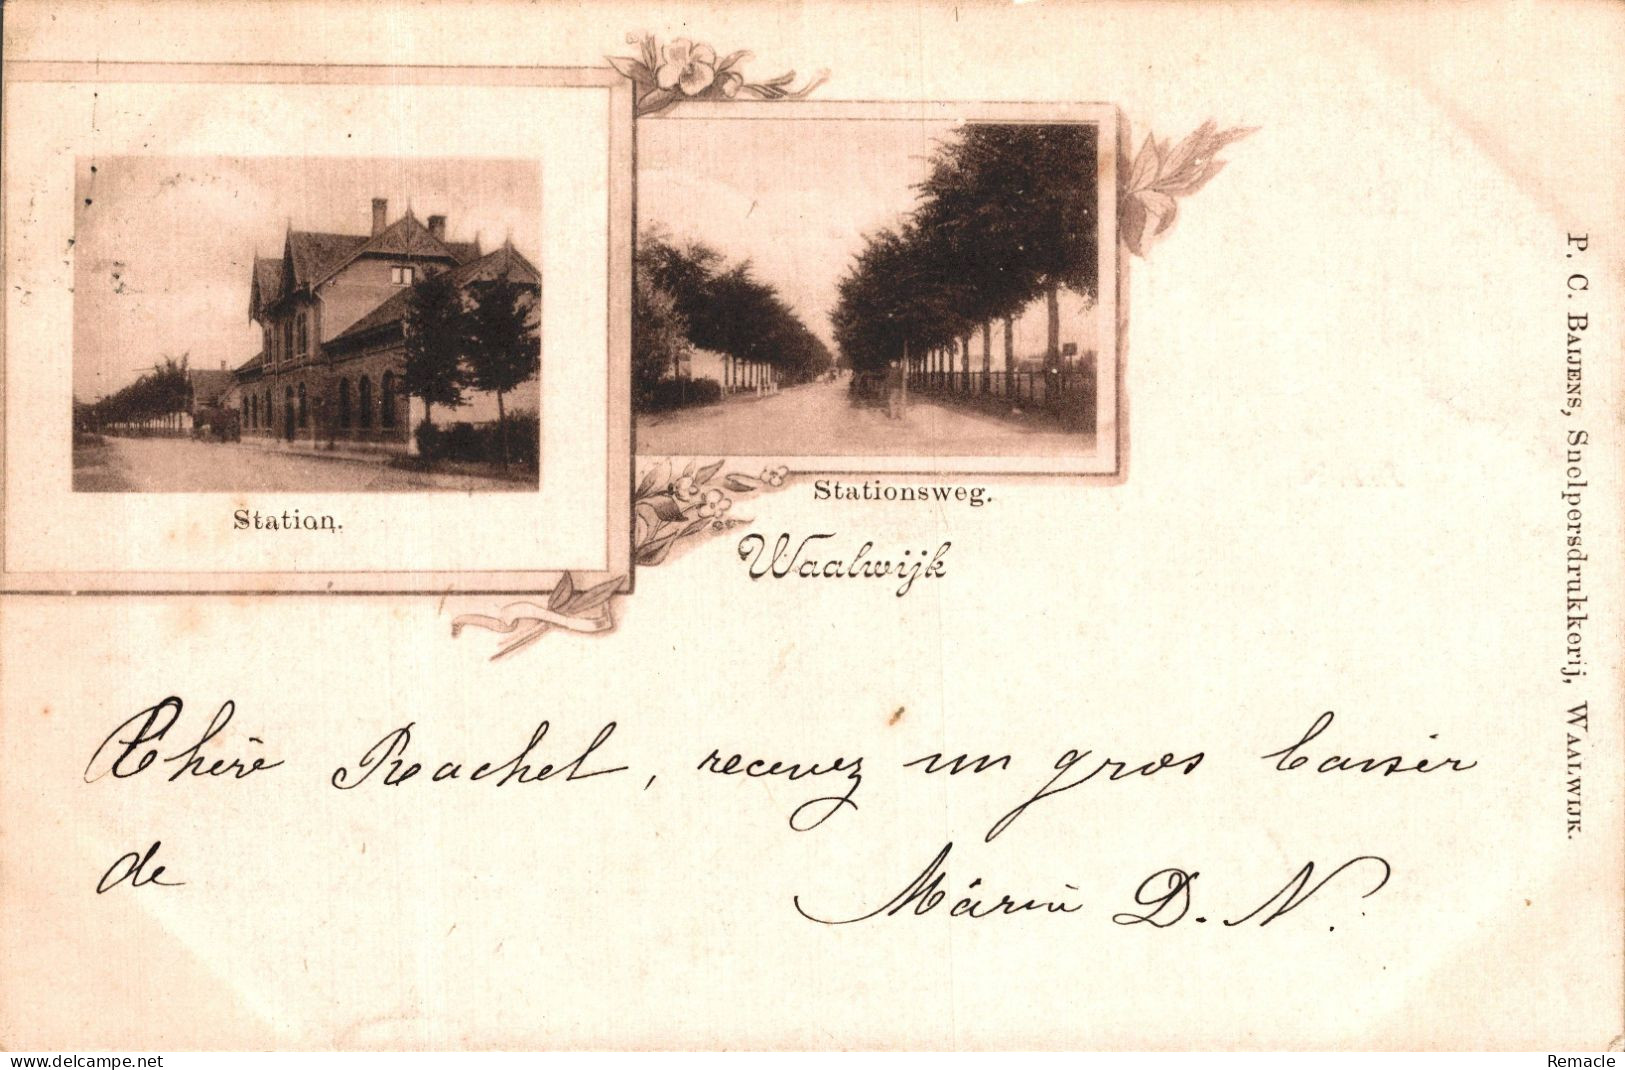 Station.
Stationsweg.
Waalwijk
P. C. BAIJENS, Snelpersdrukkerij, WAALWIJK.
Chère Rachel, recevez un gros baiser
de
Marie D. N.
www.delcampe.net
Remacle